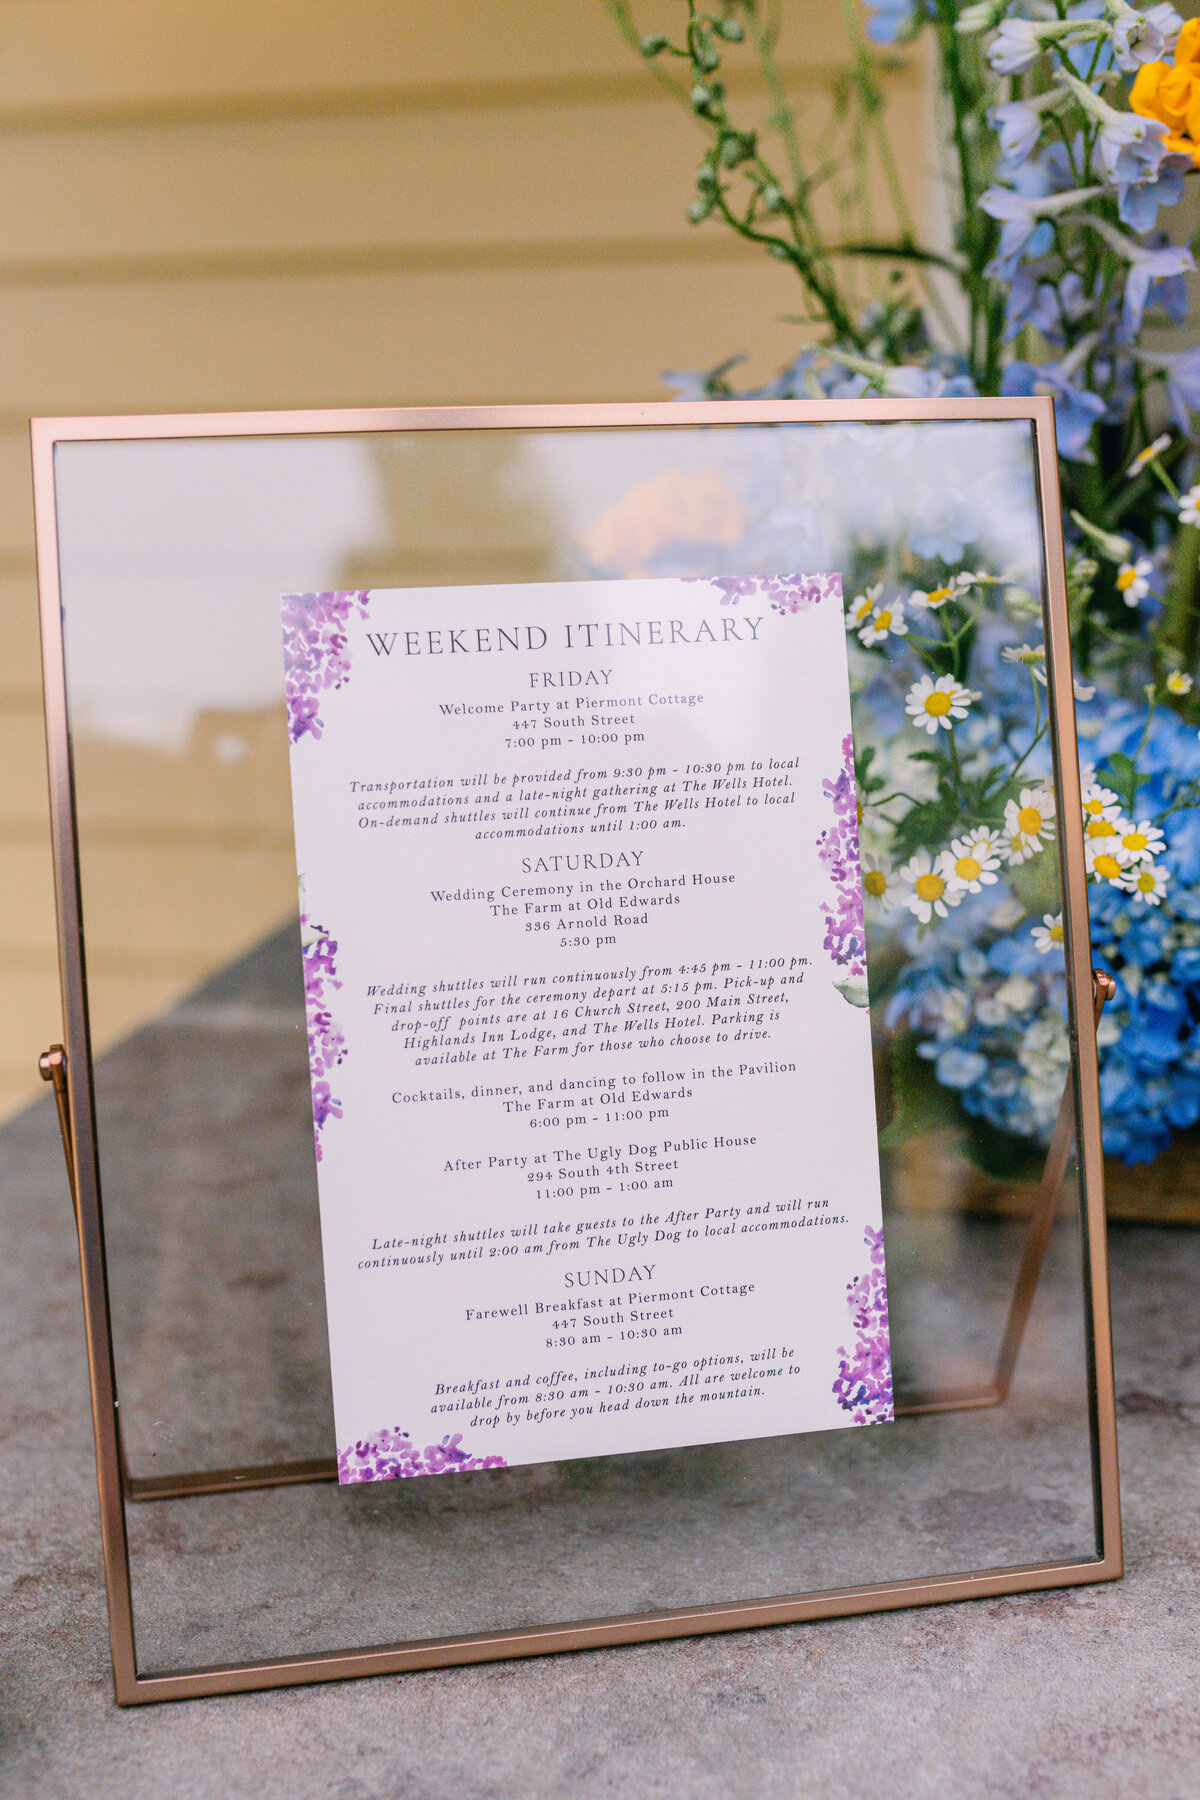 WEEKEND ITINERARY
FRIDAY
Welcome Party at Piermont Cottage
447 South Street
7:00 pm - 10:00 pm
Transportation will be provided from 9:30 pm - 10:30 pm to local
accommodations and a late-night gathering at The Wells Hotel.
On-demand shuttles will continue from The Wells Hotel to local
accommodations until 1:00 am.
SATURDAY
Wedding Ceremony in the Orchard House
The Farm at Old Edwards
336 Arnold Road
5:30 pm
Wedding shuttles will run continuously from 4:45 pm - 11:00 pm.
Final shuttles for the ceremony depart at 5:15 pm. Pick-up and
drop-off points are at 16 Church Street, 200 Main Street,
Highlands Inn Lodge, and The Wells Hotel. Parking is
available at The Farm for those who choose to drive.
Cocktails, dinner, and dancing to follow in the Pavilion
The Farm at Old Edwards
6:00 pm - 11:00 pm
After Party at The Ugly Dog Public House
294 South 4th Street
11:00 pm - 1:00 am
Late-night shuttles will take guests to the After Party and will run
continuously until 2:00 am from The Ugly Dog to local accommodations.
SUNDAY
Farewell Breakfast at Piermont Cottage
447 South Street
8:30 am - 10:30 am
Breakfast and coffee, including to-go options, will be
available from 8:30 am - 10:30 am. All are welcome to
drop by before you head down the mountain.